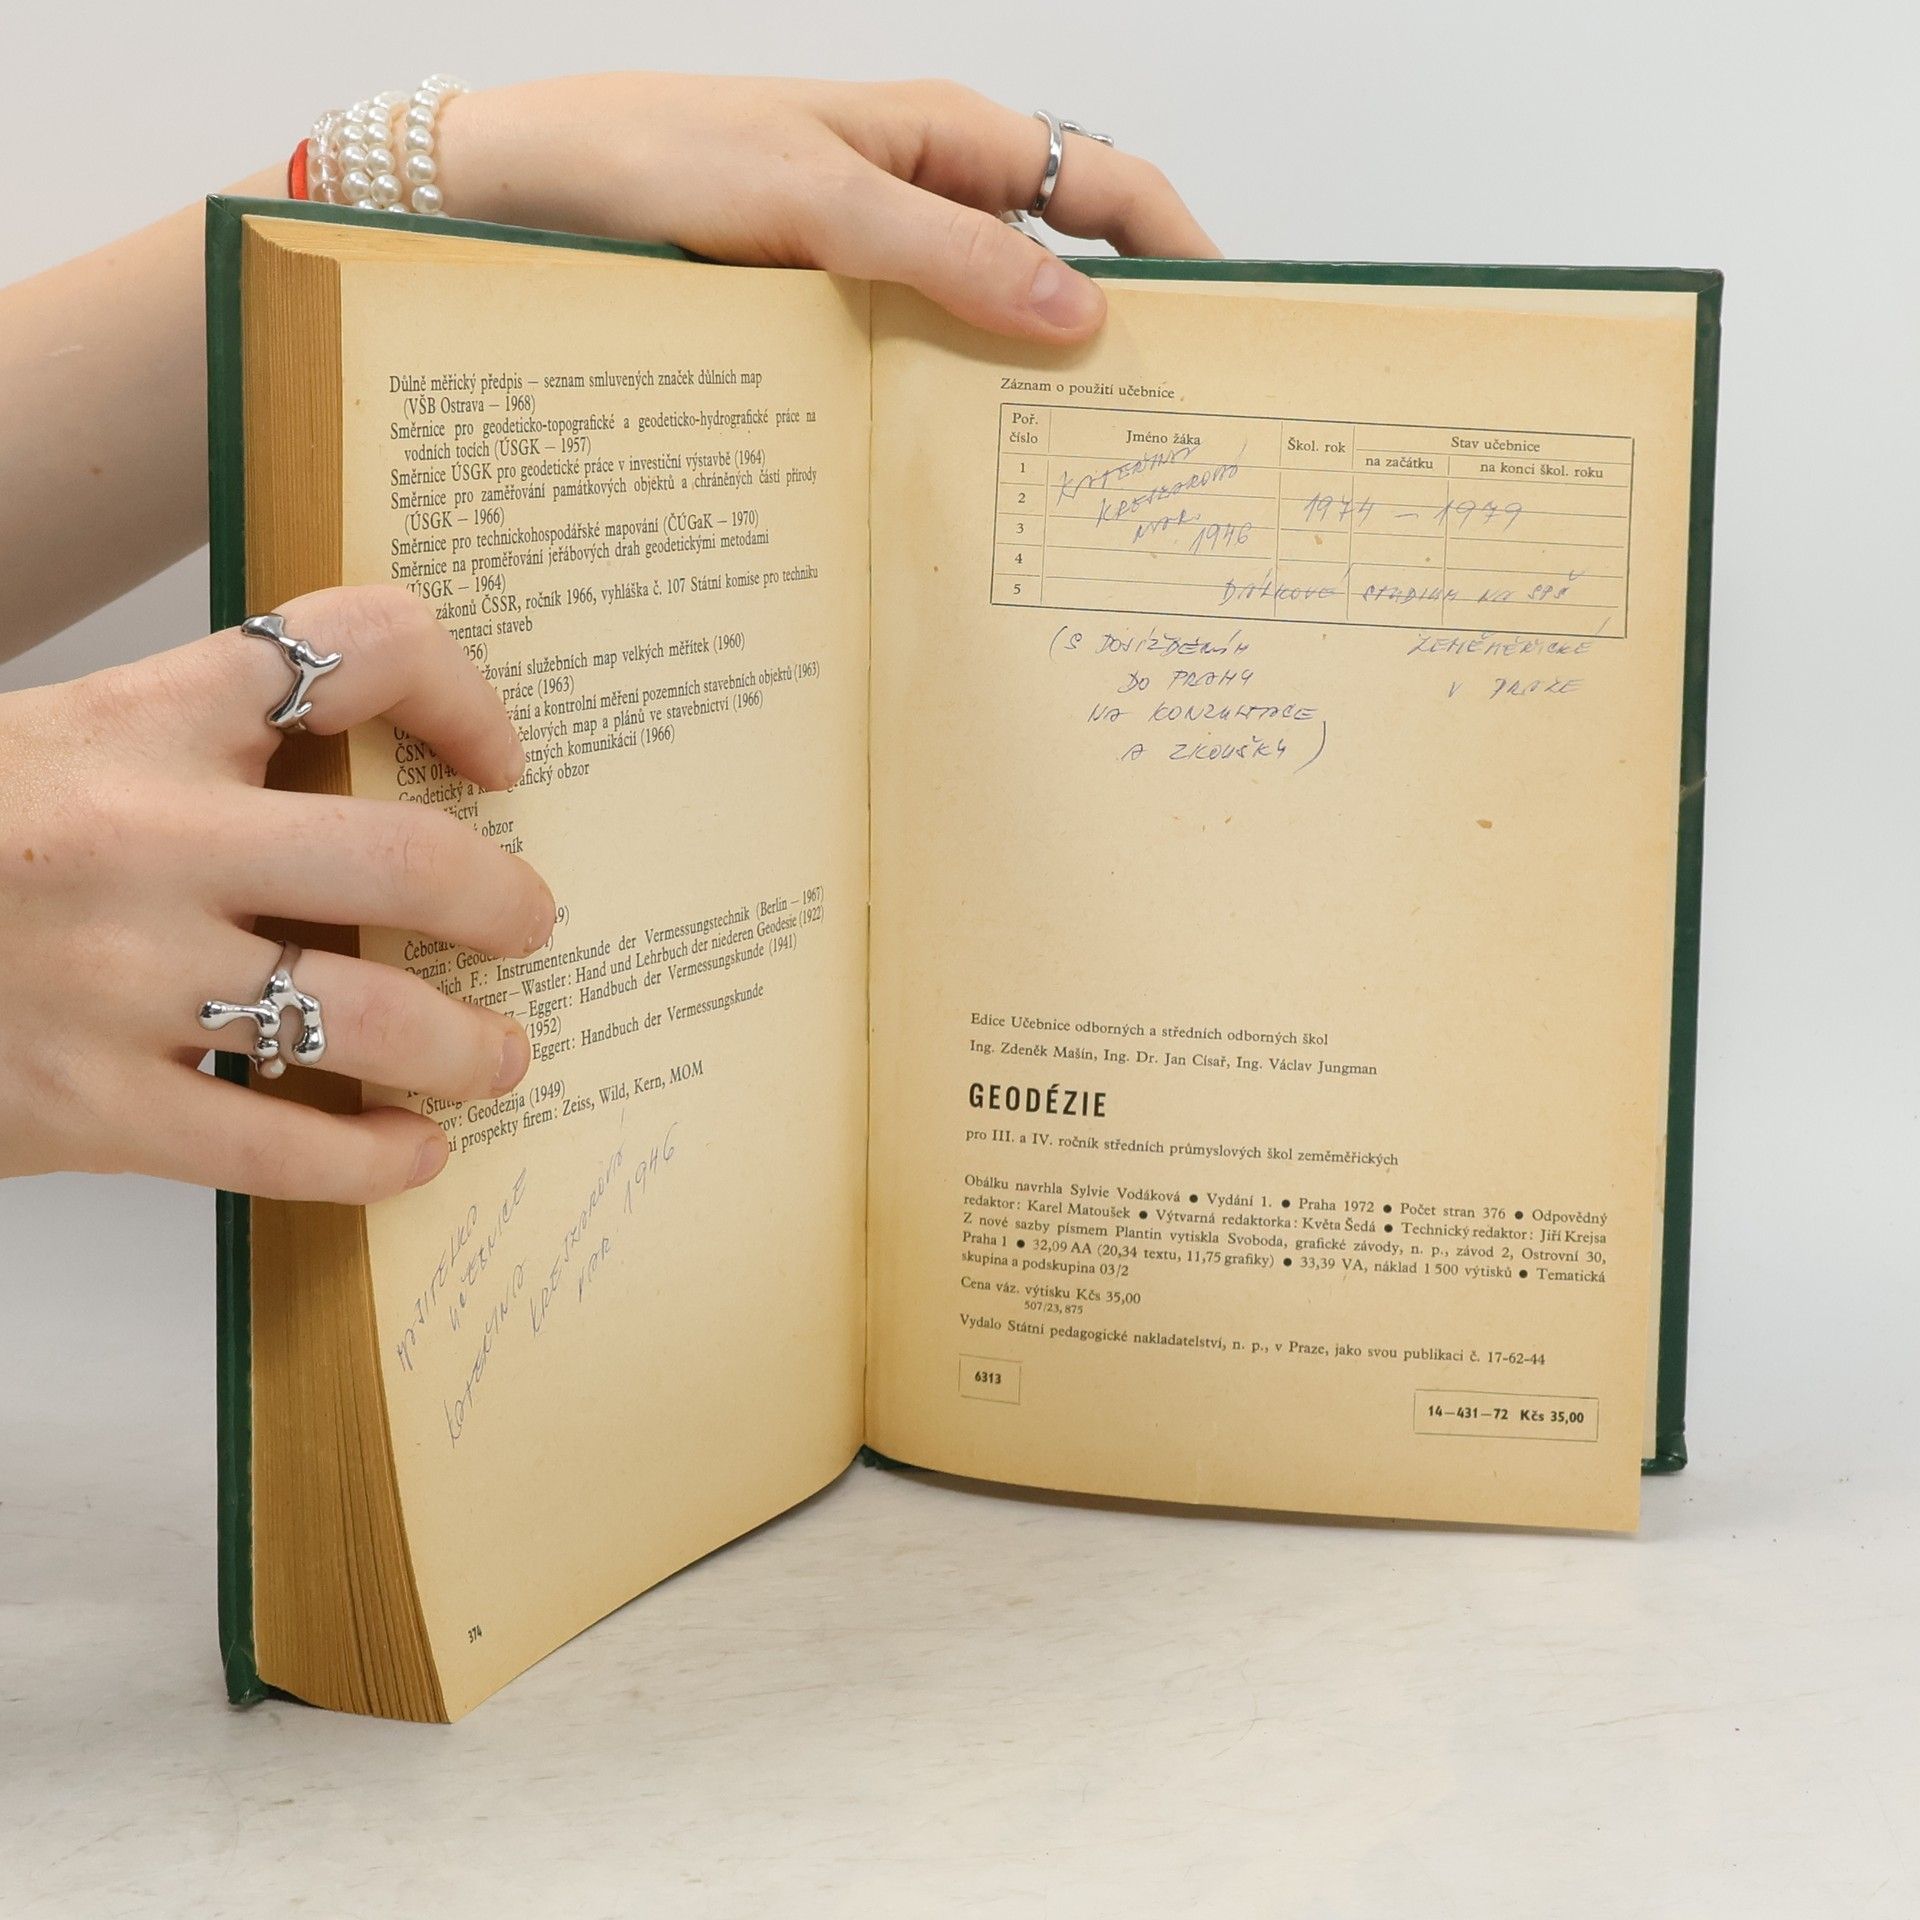 Důlně měřický předpis — seznam smluvených značek důlních map
(VŠB Ostrava — 1968)
Směrnice pro geodeticko-topografické a geodeticko-hydrografické práce na
vodních tocích (ÚSGK — 1957)
Směrnice ÚSGK pro geodetické práce v investiční výstavbě (1964)
Směrnice pro zaměřování památkových objektů a chráněných částí přírody
(ÚSGK — 1966)
Směrnice pro technickohospodářské mapování (ČÚGaK — 1970)
Směrnice na proměřování jeřábových drah geodetickými metodami
(ÚSGK — 1964)
zákonů ČSSR, ročník 1966, vyhláška č. 107 Státní komise pro techniku
mentaci staveb
956)
žování služebních map velkých měřítek (1960)
práce (1963)
vání a kontrolní měření pozemních stavebních objektů (1963)
čelových map a plánů ve stavebnictví (1966)
ČSN stných komunikácií (1966)
ČSN 014
Geodetický a k grafický obzor
obzor
tník
49)
Denzin: Geod
lich F.: Instrumentenkunde der Vermessungstechnik (Berlin — 1967)
Hartner—Wastler: Hand und Lehrbuch der niederen Geodesie (1922)
—Eggert: Handbuch der Vermessungskunde (1941)
(1952)
Eggert: Handbuch der Vermessungskunde
rov: Geodezija (1949)
ní prospekty firem: Zeiss, Wild, Kern, MOM
MAJITELKA
UČEBNICE
KATEŘINA
KRESZAROVÁ
NAR. 1946
374
Záznam o použití učebnice
Poř. číslo Jméno žáka Škol. rok Stav učebnice
na začátku na konci škol. roku
1 KATEŘINA
2 KRESZAROVÁ 1974 — 1979
3 NAR. 1946
4
5 DÁLKOVÉ STUDIUM NA SPŠ
(S DOJÍŽDĚNÍM ZEMĚMĚŘICKÉ
DO PRAHY V PRAZE
NA KONZULTACE
A ZKOUŠKY)
Edice Učebnice odborných a středních odborných škol
Ing. Zdeněk Mašín, Ing. Dr. Jan Císař, Ing. Václav Jungman
GEODÉZIE
pro III. a IV. ročník středních průmyslových škol zeměměřických
Obálku navrhla Sylvie Vodáková ● Vydání 1. ● Praha 1972 ● Počet stran 376 ● Odpovědný
redaktor: Karel Matoušek ● Výtvarná redaktorka: Květa Šedá ● Technický redaktor: Jiří Krejsa
Z nové sazby písmem Plantin vytiskla Svoboda, grafické závody, n. p., závod 2, Ostrovní 30,
Praha 1 ● 32,09 AA (20,34 textu, 11,75 grafiky) ● 33,39 VA, náklad 1 500 výtisků ● Tematická
skupina a podskupina 03/2
Cena váz. výtisku Kčs 35,00
507/23, 875
Vydalo Státní pedagogické nakladatelství, n. p., v Praze, jako svou publikaci č. 17-62-44
6313
14—431—72 Kčs 35,00